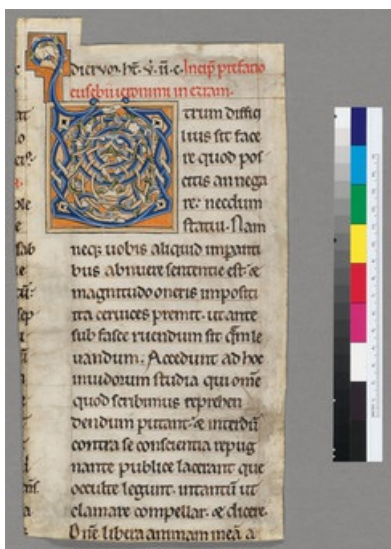 dieruor. ht. v̄. ii. c. Incip̄ prefatio
eusebii ieronimi in ezram.
Utrum diffici
lius sit face
re quod pos
citis an nega
re: necdum
statui. Nam
neq; uobis aliquid imparti
bus abnuere sententie est. &
magnitudo oneris impositi
ita ceruices premit. ut ante
sub fasce ruendum sit q̄m le
uandum. Accedunt ad hoc
inuidorum studia qui om̄e
quod scribimus reprehen
dendum putant. & interdū
contra se conscientia repug
nante publice lacerant que
occulte legunt. intantū ut
clamare compellar. & dicere.
Dn̄e libera animam meā a